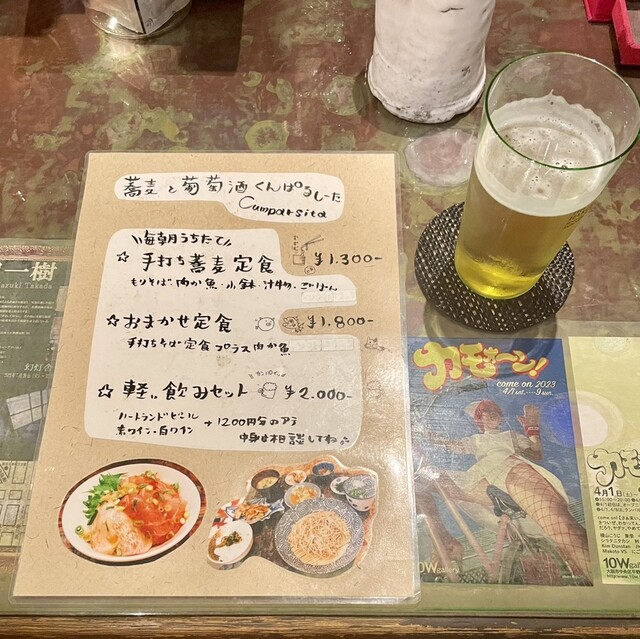 蕎麦と葡萄酒くんぱるしーた
Cumparsita
\\毎朝うちたて//
☆手打ち蕎麦定食 ¥1.300-
もりそば・肉か魚・小鉢・汁物・ごはん
☆おまかせ定食 ¥1.800-
手打ちそば定食プラス肉か魚
☆軽い飲みセット ¥2.000-
ハートランドビール
赤ワイン・白ワイン
+1200円分のアテ
中身は相談してね
樹
Kazuki Takada
カモーン!
come on 2023
4/1 sat.....9 sun.
4月1日
10W gallery
10Wgal